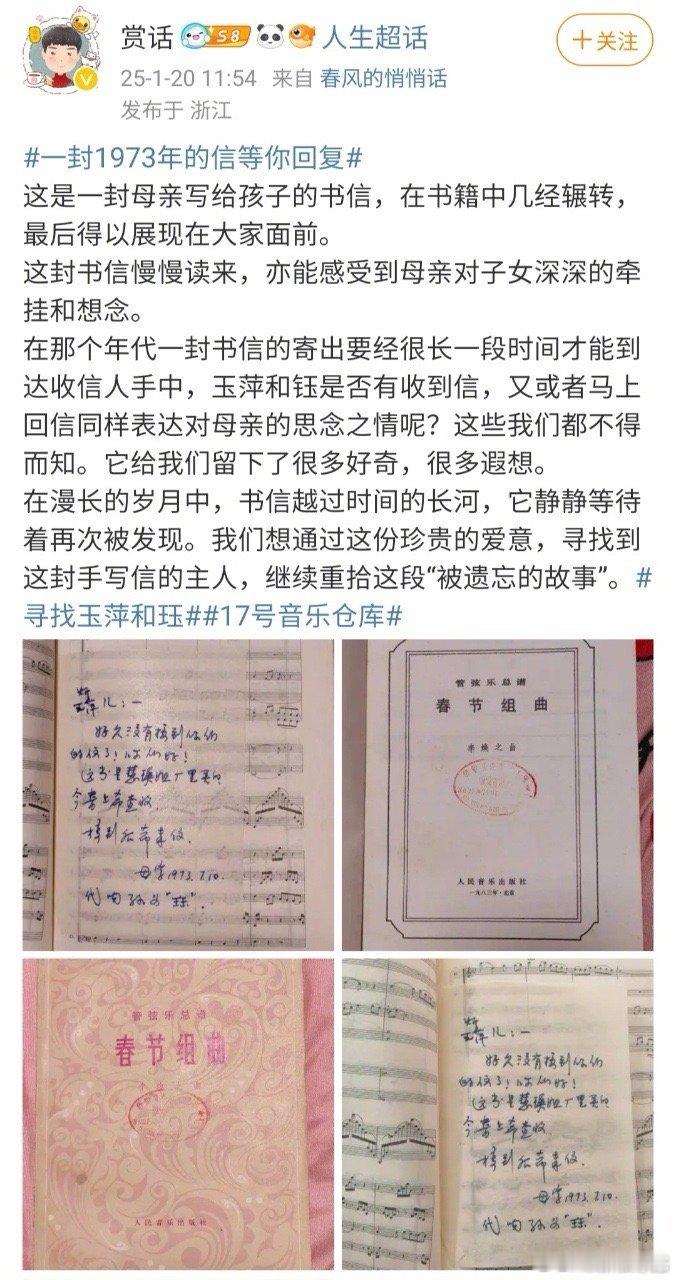 赏话 S8 人生超话
+关注
25-1-20 11:54 来自 春风的悄悄话
发布于 浙江
#一封1973年的信等你回复#
这是一封母亲写给孩子的书信，在书籍中几经辗转，
最后得以展现在大家面前。
这封书信慢慢读来，亦能感受到母亲对子女深深的牵
挂和想念。
在那个年代一封书信的寄出要经很长一段时间才能到
达收信人手中，玉萍和钰是否有收到信，又或者马上
回信同样表达对母亲的思念之情呢？这些我们都不得
而知。它给我们留下了很多好奇，很多遐想。
在漫长的岁月中，书信越过时间的长河，它静静等待
着再次被发现。我们想通过这份珍贵的爱意，寻找到
这封手写信的主人，继续重拾这段“被遗忘的故事”。#
寻找玉萍和珏##17号音乐仓库#
儿：一
好久没有接到你们
的信了，你们好！
今寄上希查收
接到后希来信.
母字1973.7.10.
代问孙女
管弦乐总谱
春节组曲
李焕之曲
人民音乐出版社
一九八三年·北京
管弦乐总谱
春节组曲
人民音乐出版社
儿：一
好久没有接到你们
的信了，你们好！
今寄上希查收
接到后希来信.
母字1973.7.10.
代问孙女